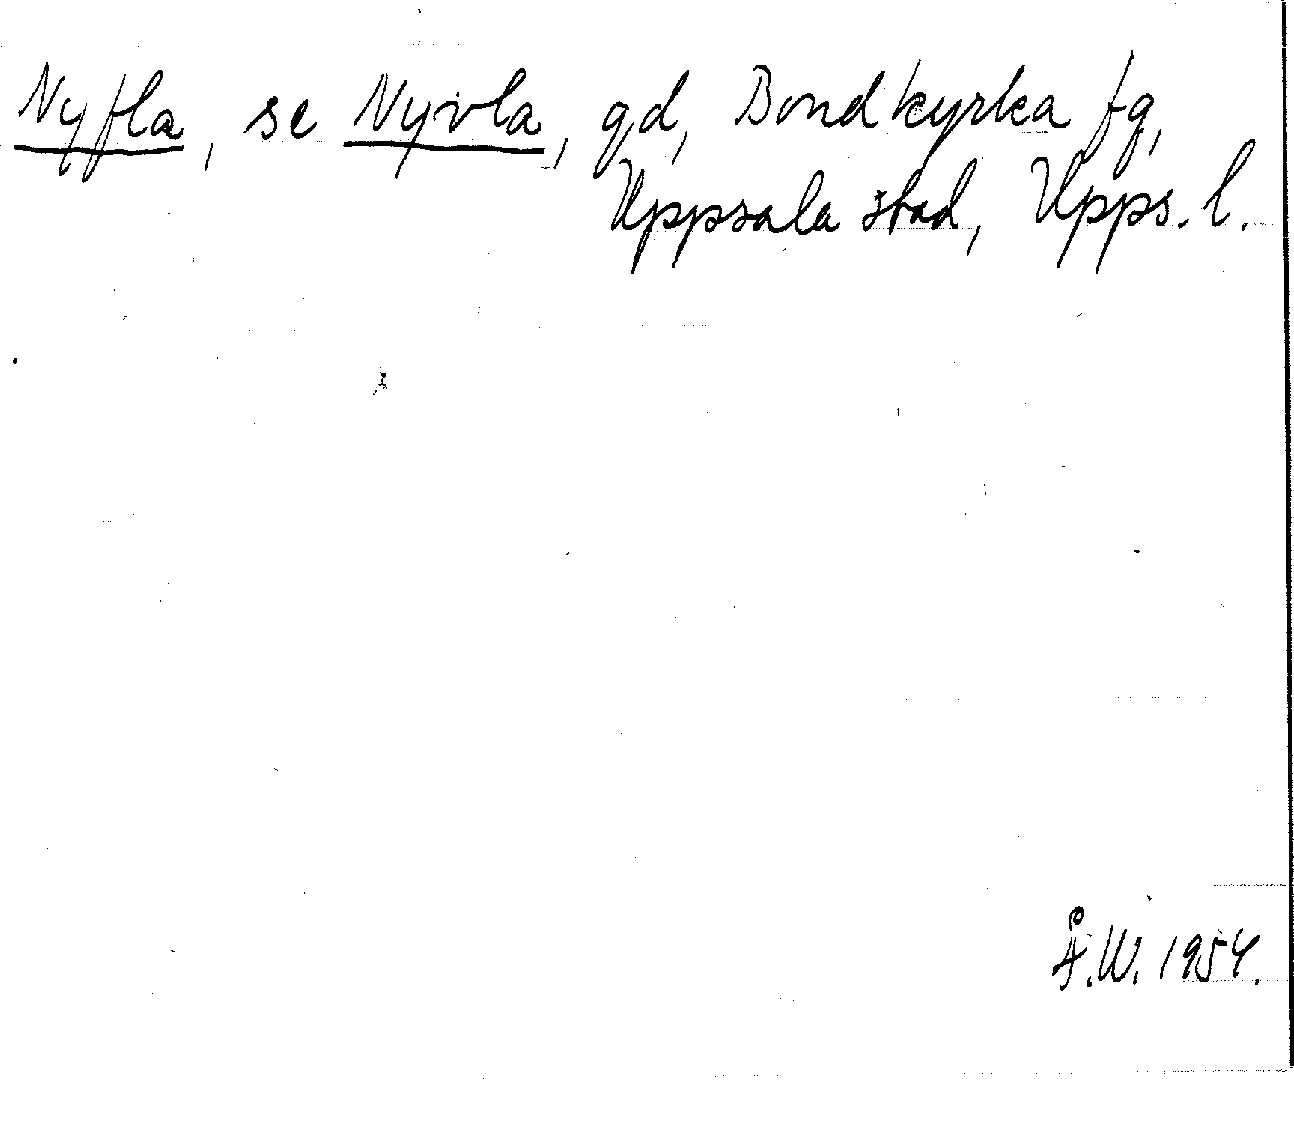 Nyfla, se Nyvla, gd, Bondkyrka fg,
Uppsala stad, Upps. l.
Å.W. 1954.